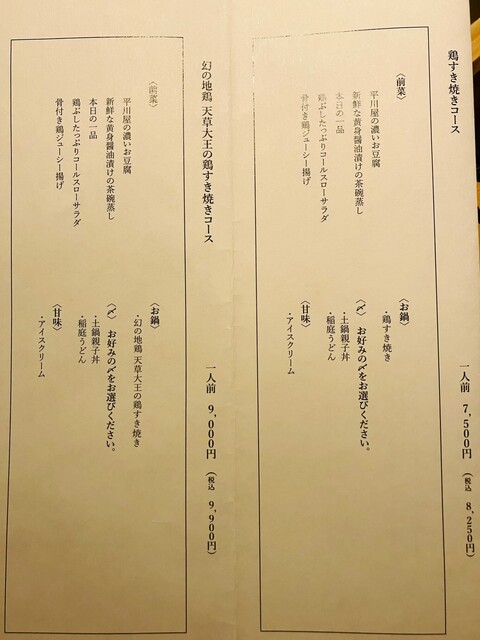 鶏すき焼きコース
一人前 7,500円(税込 8,250円)
〈前菜〉
平川屋の濃いお豆腐
新鮮な黄身醤油漬けの茶碗蒸し
本日の一品
鶏ぶしたっぷりコールスローサラダ
骨付き鶏ジューシー揚げ
〈お鍋〉
・鶏すき焼き
〈〆〉 お好みの〆をお選びください。
・土鍋親子丼
・稲庭うどん
〈甘味〉
・アイスクリーム
幻の地鶏 天草大王の鶏すき焼きコース
一人前 9,000円(税込 9,900円)
〈前菜〉
平川屋の濃いお豆腐
新鮮な黄身醤油漬けの茶碗蒸し
本日の一品
鶏ぶしたっぷりコールスローサラダ
骨付き鶏ジューシー揚げ
〈お鍋〉
・幻の地鶏 天草大王の鶏すき焼き
〈〆〉 お好みの〆をお選びください。
・土鍋親子丼
・稲庭うどん
〈甘味〉
・アイスクリーム